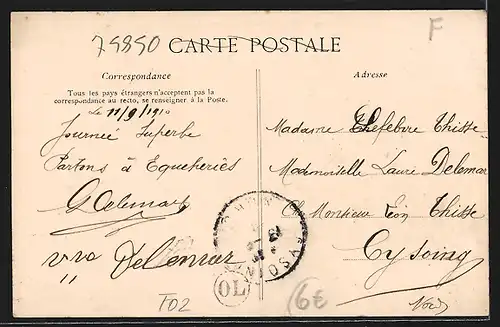 75850
F
CARTE POSTALE
Correspondance
Tous les pays étrangers n'acceptent pas la
correspondance au recto, se renseigner à la Poste.
Le 11/9/1910
Journée Superbe
Partons à Equeheries
G Delemar
Delemar
Adresse
Madame Lefebvre Thisse
Mademoiselle Laure Delemar
Ch Monsieur Léon Thisse
Cysoing
Nord
CYSOING
OL
TO2
6€